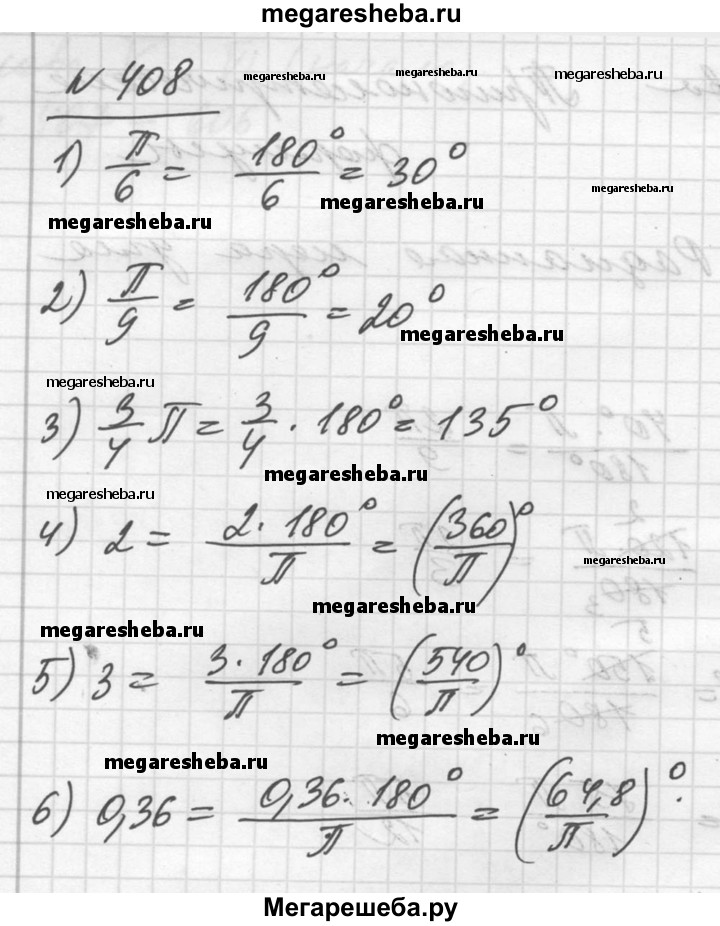 megaresheba.ru
N 408
megaresheba.ru megaresheba.ru megaresheba.ru
1) П/6 = 180°/6 = 30°
megaresheba.ru
megaresheba.ru
megaresheba.ru
2) П/9 = 180°/9 = 20°
megaresheba.ru
megaresheba.ru
3) 3/4 П = 3/4 · 180° = 135°
megaresheba.ru
megaresheba.ru
4) 2 = 2·180°/П = (360/П)°
megaresheba.ru
megaresheba.ru
megaresheba.ru
5) 3 = 3·180°/П = (540/П)°
megaresheba.ru
megaresheba.ru
6) 0,36 = 0,36·180°/П = (64,8/П)°.
Мегарешеба.ру